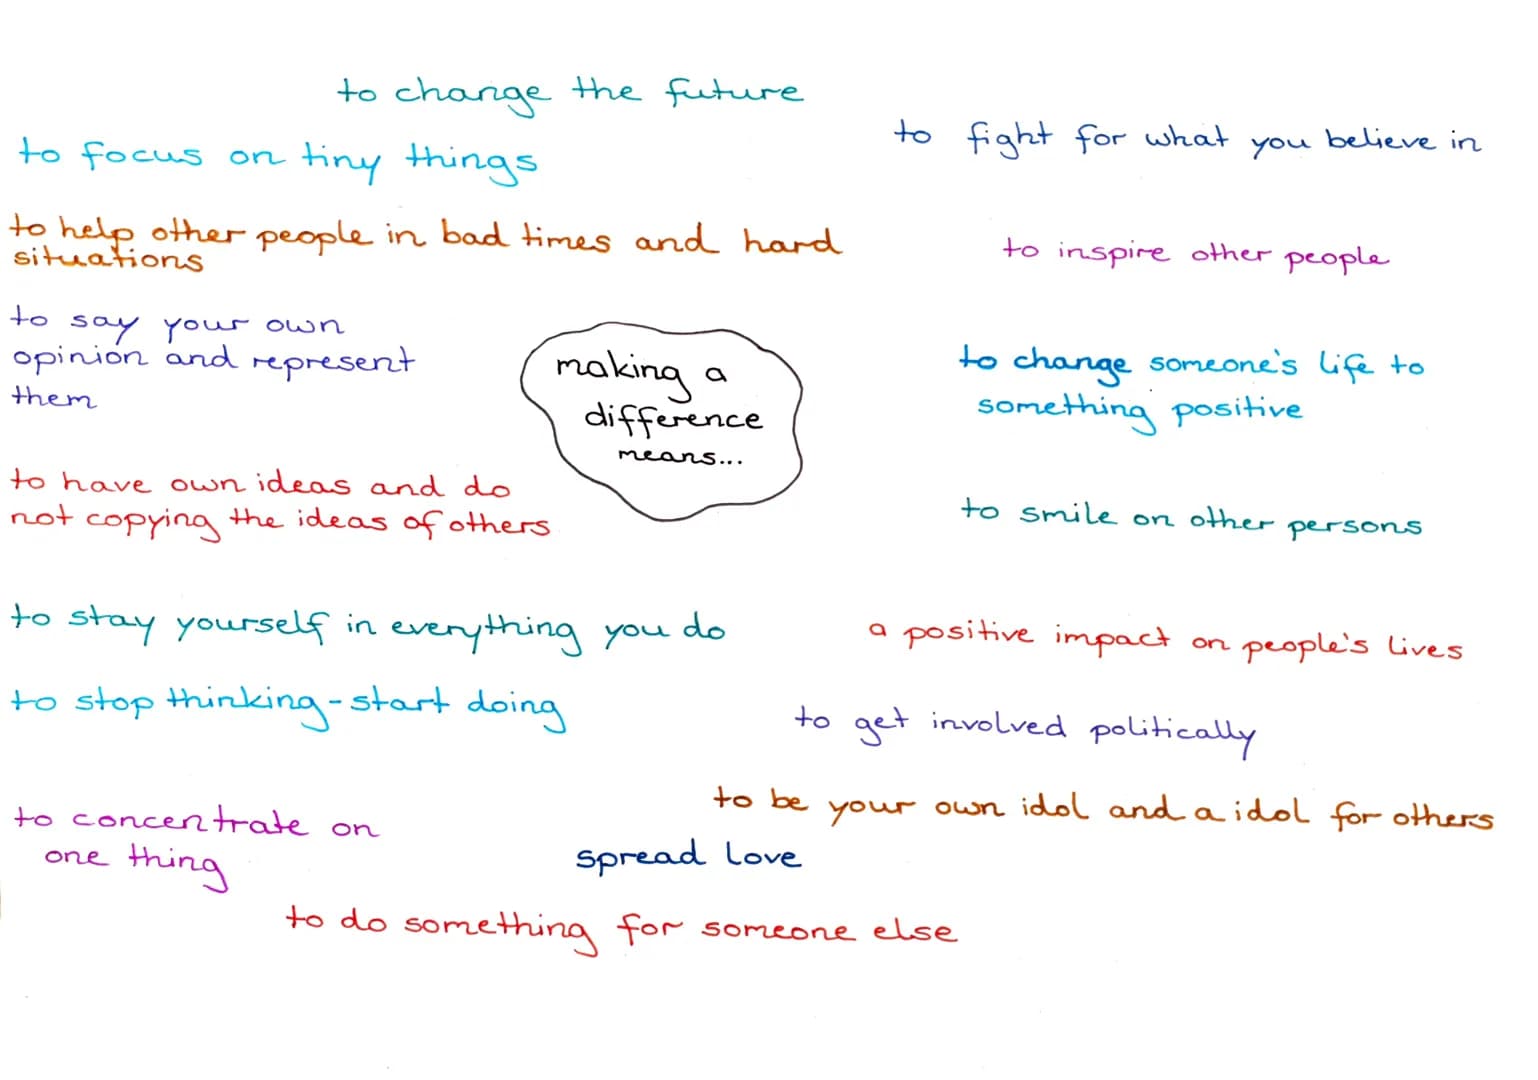 to change the future
to fight for what you believe in
to focus on tiny things
to help other people in bad times and hard
situations
to inspire other people
to say your own
opinion and represent
them
making a
difference
means...
to change someone's life to
something positive
to have own ideas and do
not copying the ideas of others
to smile on other persons
to stay yourself in everything you do
a positive impact on people's lives
to stop thinking-start doing
to get involved politically
to be your own idol and a idol for others
to concentrate on
one thing
spread love
to do something for someone else